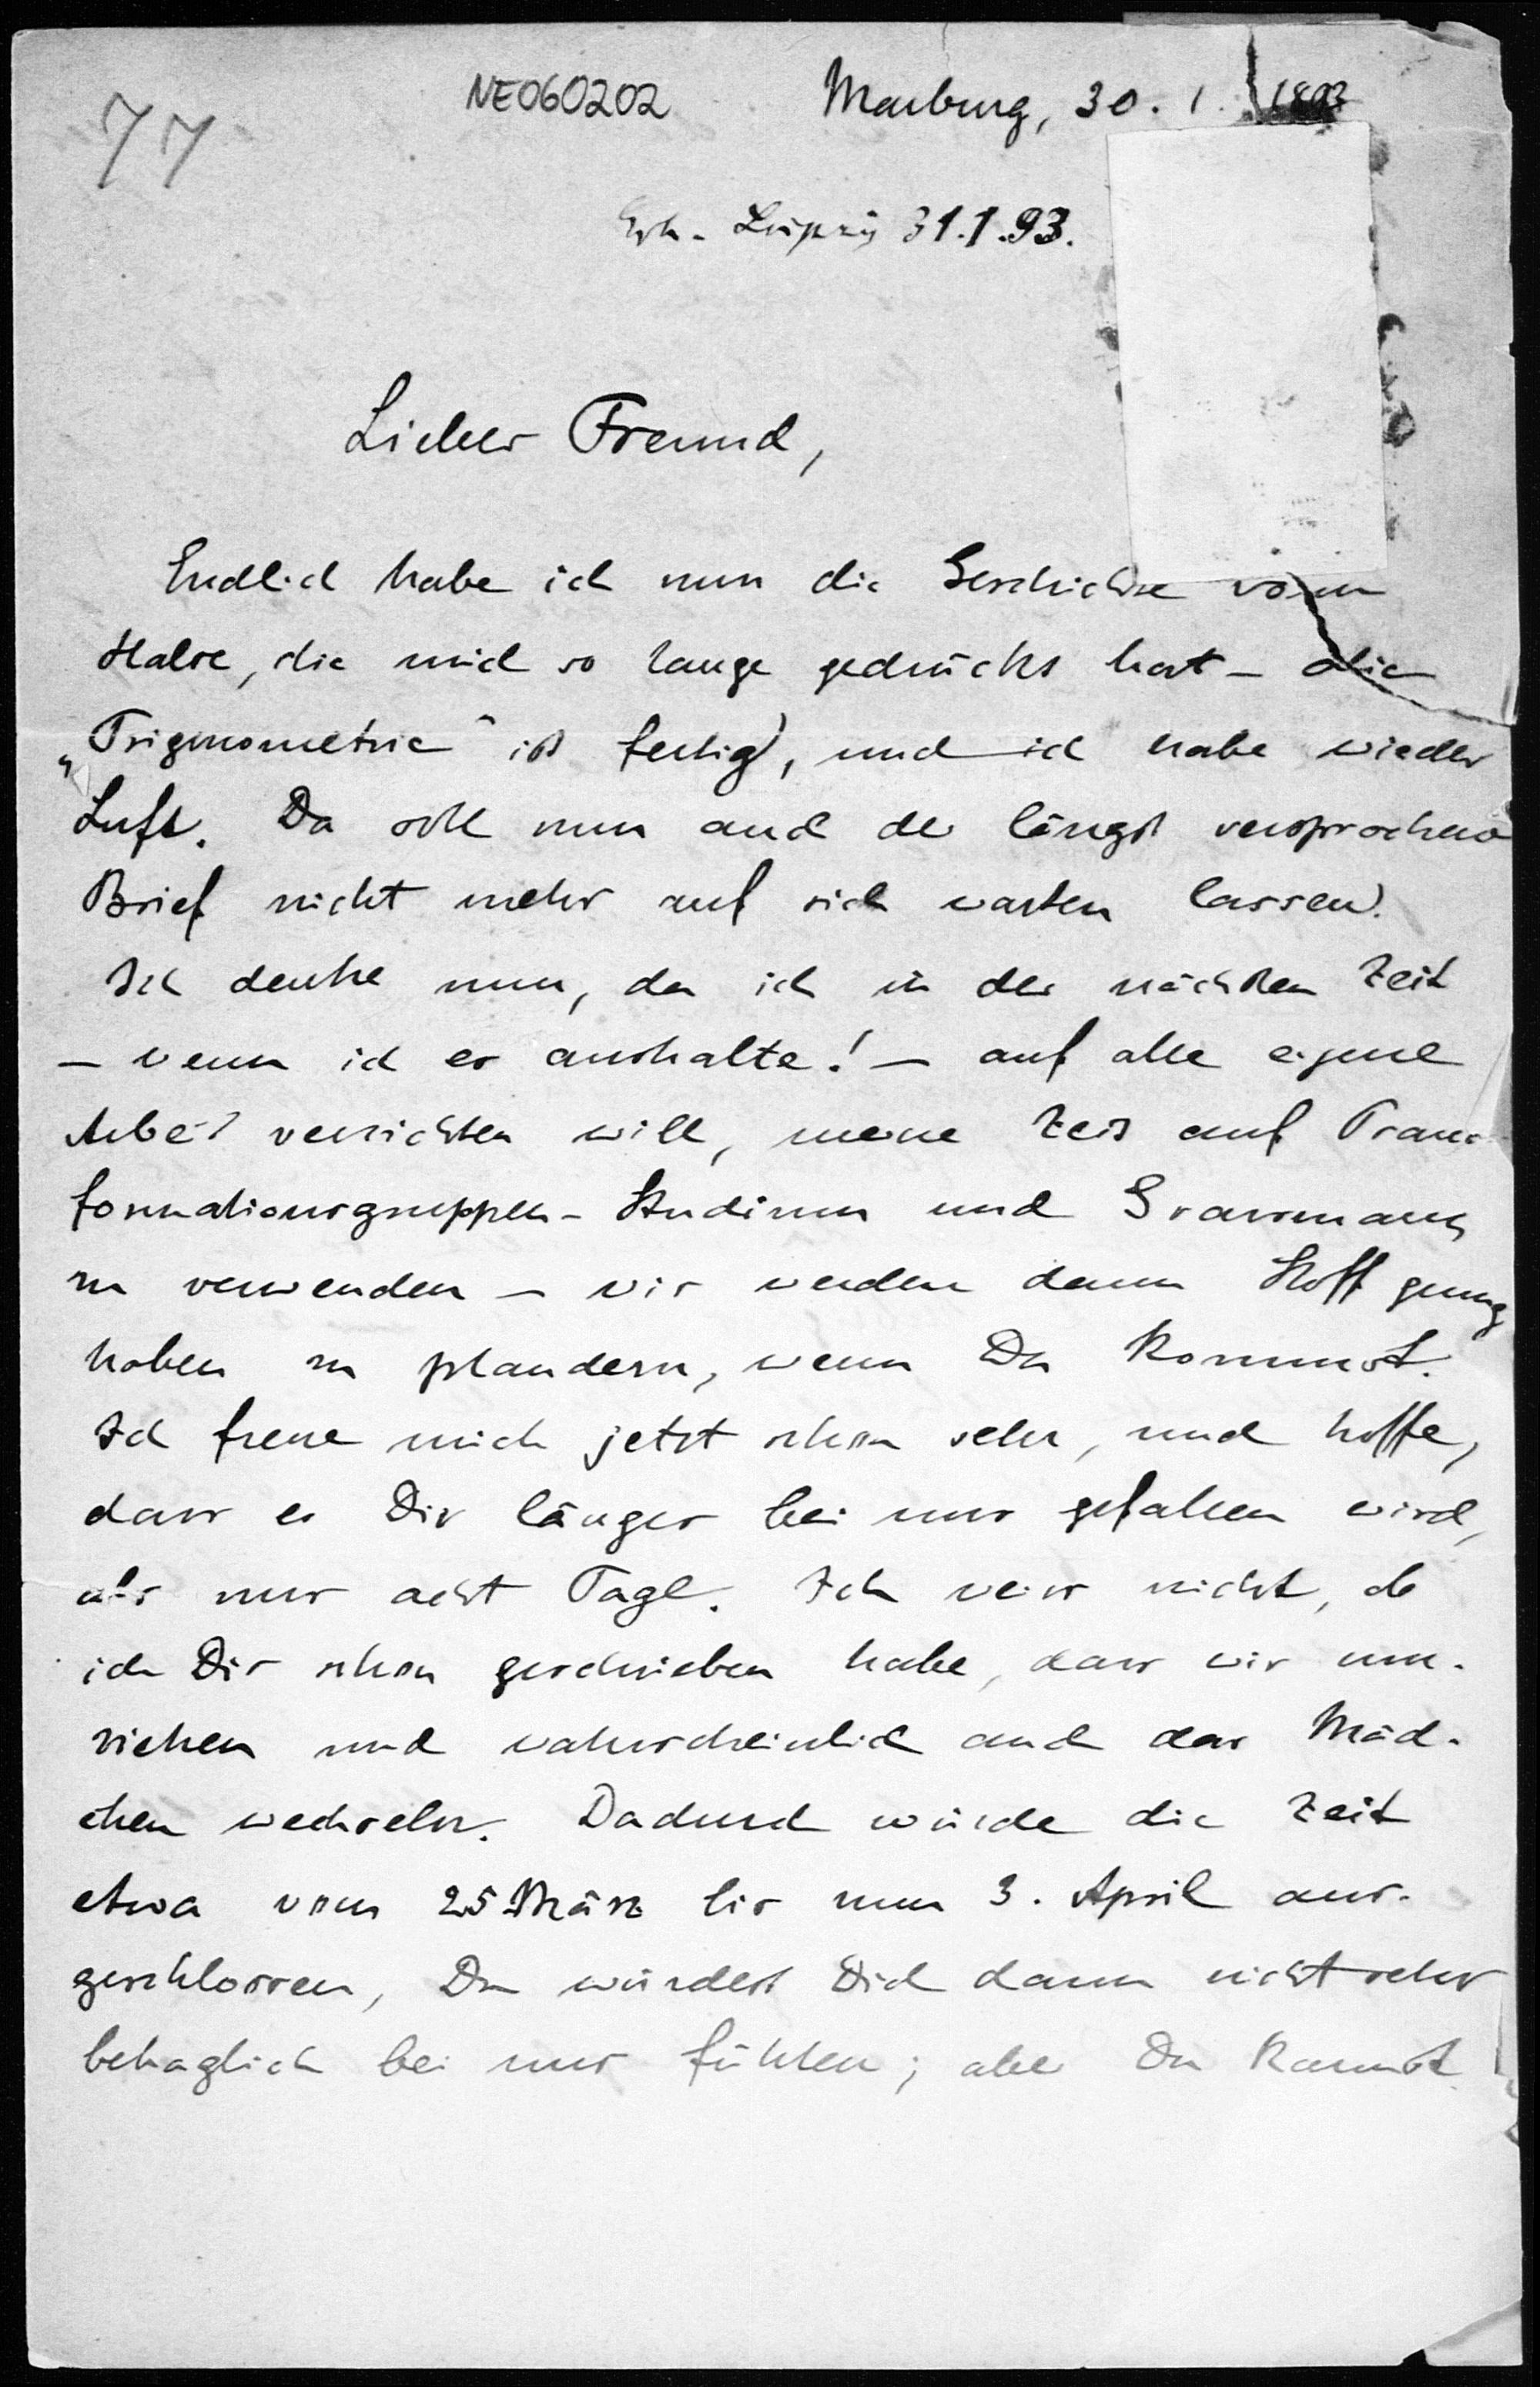 77
NE060202
Marburg, 30. 1. 1893
Erh. Leipzig 31.1.93.
Lieber Freund,
Endlich habe ich nun die Geschichte vom
Halse, die mich so lange gedrückt hat – die
„Trigonometrie“ ist fertig, und ich habe wieder
Luft. Da soll nun auch der längst versprochene
Brief nicht mehr auf sich warten lassen.
Ich denke nun, da ich in der nächsten Zeit
– wenn ich es aushalte! – auf alle eigene
Arbeit verzichten will, meine Zeit auf Trans-
formationsgruppen-Studium und Grassmann
zu verwenden – wir werden dann Stoff genug
haben zu plaudern, wenn Du kommst.
Ich freue mich jetzt schon sehr, und hoffe,
dass es Dir länger bei uns gefallen wird,
als nur acht Tage. Ich weiss nicht, ob
ich Dir schon geschrieben habe, dass wir um-
ziehen und wahrscheinlich auch das Mäd-
chen wechseln. Dadurch würde die Zeit
etwa vom 25 März bis zum 3. April aus-
geschlossen, Du würdest Dich dann nicht sehr
behaglich bei uns fühlen; aber Du kannst